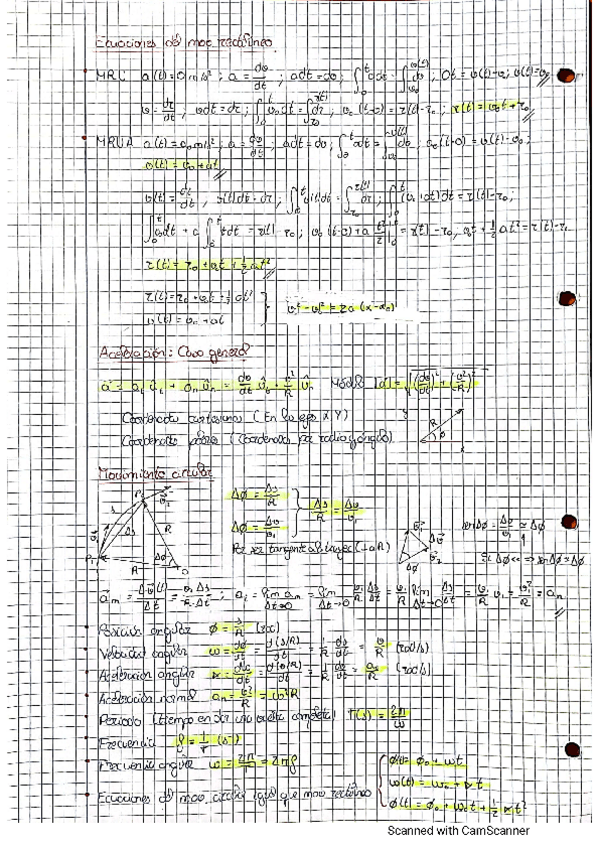 Ecuaciones del mov. rectilíneo
• MRU a(t)=0 m/s²; a = dv/dt; adt=dv; ∫₀ᵗ adt = ∫ dv; 0t = v(t)-v₀; v(t)=v₀
v = dr/dt; vdt=dr; ∫₀ᵗ v₀dt = ∫ dr; v₀(t-0) = r(t)-r₀; r(t) = v₀t + r₀
• MRUA a(t) = a₀ m/s²; a = dv/dt; adt = dv; ∫₀ᵗ adt = ∫ dv; a₀(t-0) = v(t)-v₀;
v(t) = v₀ + at
v(t) = dr/dt; v(t)dt = dr; ∫₀ᵗ v(t)dt = ∫ dr; ∫₀ᵗ (v₀+at)dt = r(t)-r₀;
∫₀ᵗ v₀dt + a ∫₀ᵗ tdt = r(t)-r₀; v₀(t-0) + a t²/2 |₀ᵗ = r(t)-r₀; v₀t + 1/2 at² = r(t)-r₀
r(t) = r₀ + v₀t + 1/2 at²
r(t) = r₀ + v₀t + 1/2 at²
v(t) = v₀ + at
v² - v₀² = 2a (x-x₀)
Aceleración: Caso general
a = aₜ ûₜ + aₙ ûₙ = dv/dt ûₜ + v²/R ûₙ Módulo |a| = √((dv/dt)² + (v²/R)²)
Coordenadas cartesianas (En los ejes X Y)
Coordenadas polares (Coordenadas por radio y ángulo)
y R φ x
Movimiento circular
P₂ v₂ s Δs R v₁ P₁ R Δφ O
Δφ = Δs/R
Δφ = Δv/v₁
Δs/R = Δv/v₁
Por ser tangente al trayec (⊥ a R)
v₁ Δv v₂ Δφ
senΔφ = Δv/v₁ ≃ Δφ
Si Δφ<< ⇒ senΔφ≃Δφ
aₘ = Δv(t)/Δt = v₁·Δs/R·Δt; aᵢ = lim aₘ = lim v₁/R Δs/Δt = v₁/R lim Δs/Δt = v₁/R v₁ = v₁²/R = aₙ
• Posición angular φ = s/R (rad)
• Velocidad angular ω = dφ/dt = d(s/R)/dt = 1/R ds/dt = v/R (rad/s)
• Aceleración angular α = dω/dt = d(v/R)/dt = 1/R dv/dt = aₜ/R (rad/s)
• Aceleración normal aₙ = v²/R = ω²R
• Periodo (tiempo en dar una vuelta completa) T(s) = 2π/ω
• Frecuencia f = 1/T (s⁻¹)
• Frecuencia angular ω = 2π/T = 2πf
• Ecuaciones del mov. circular igual que mov. rectilíneo
φ(t) = φ₀ + ωt
ω(t) = ω₀ + αt
φ(t) = φ₀ + ω₀t + 1/2 αt²
Scanned with CamScanner